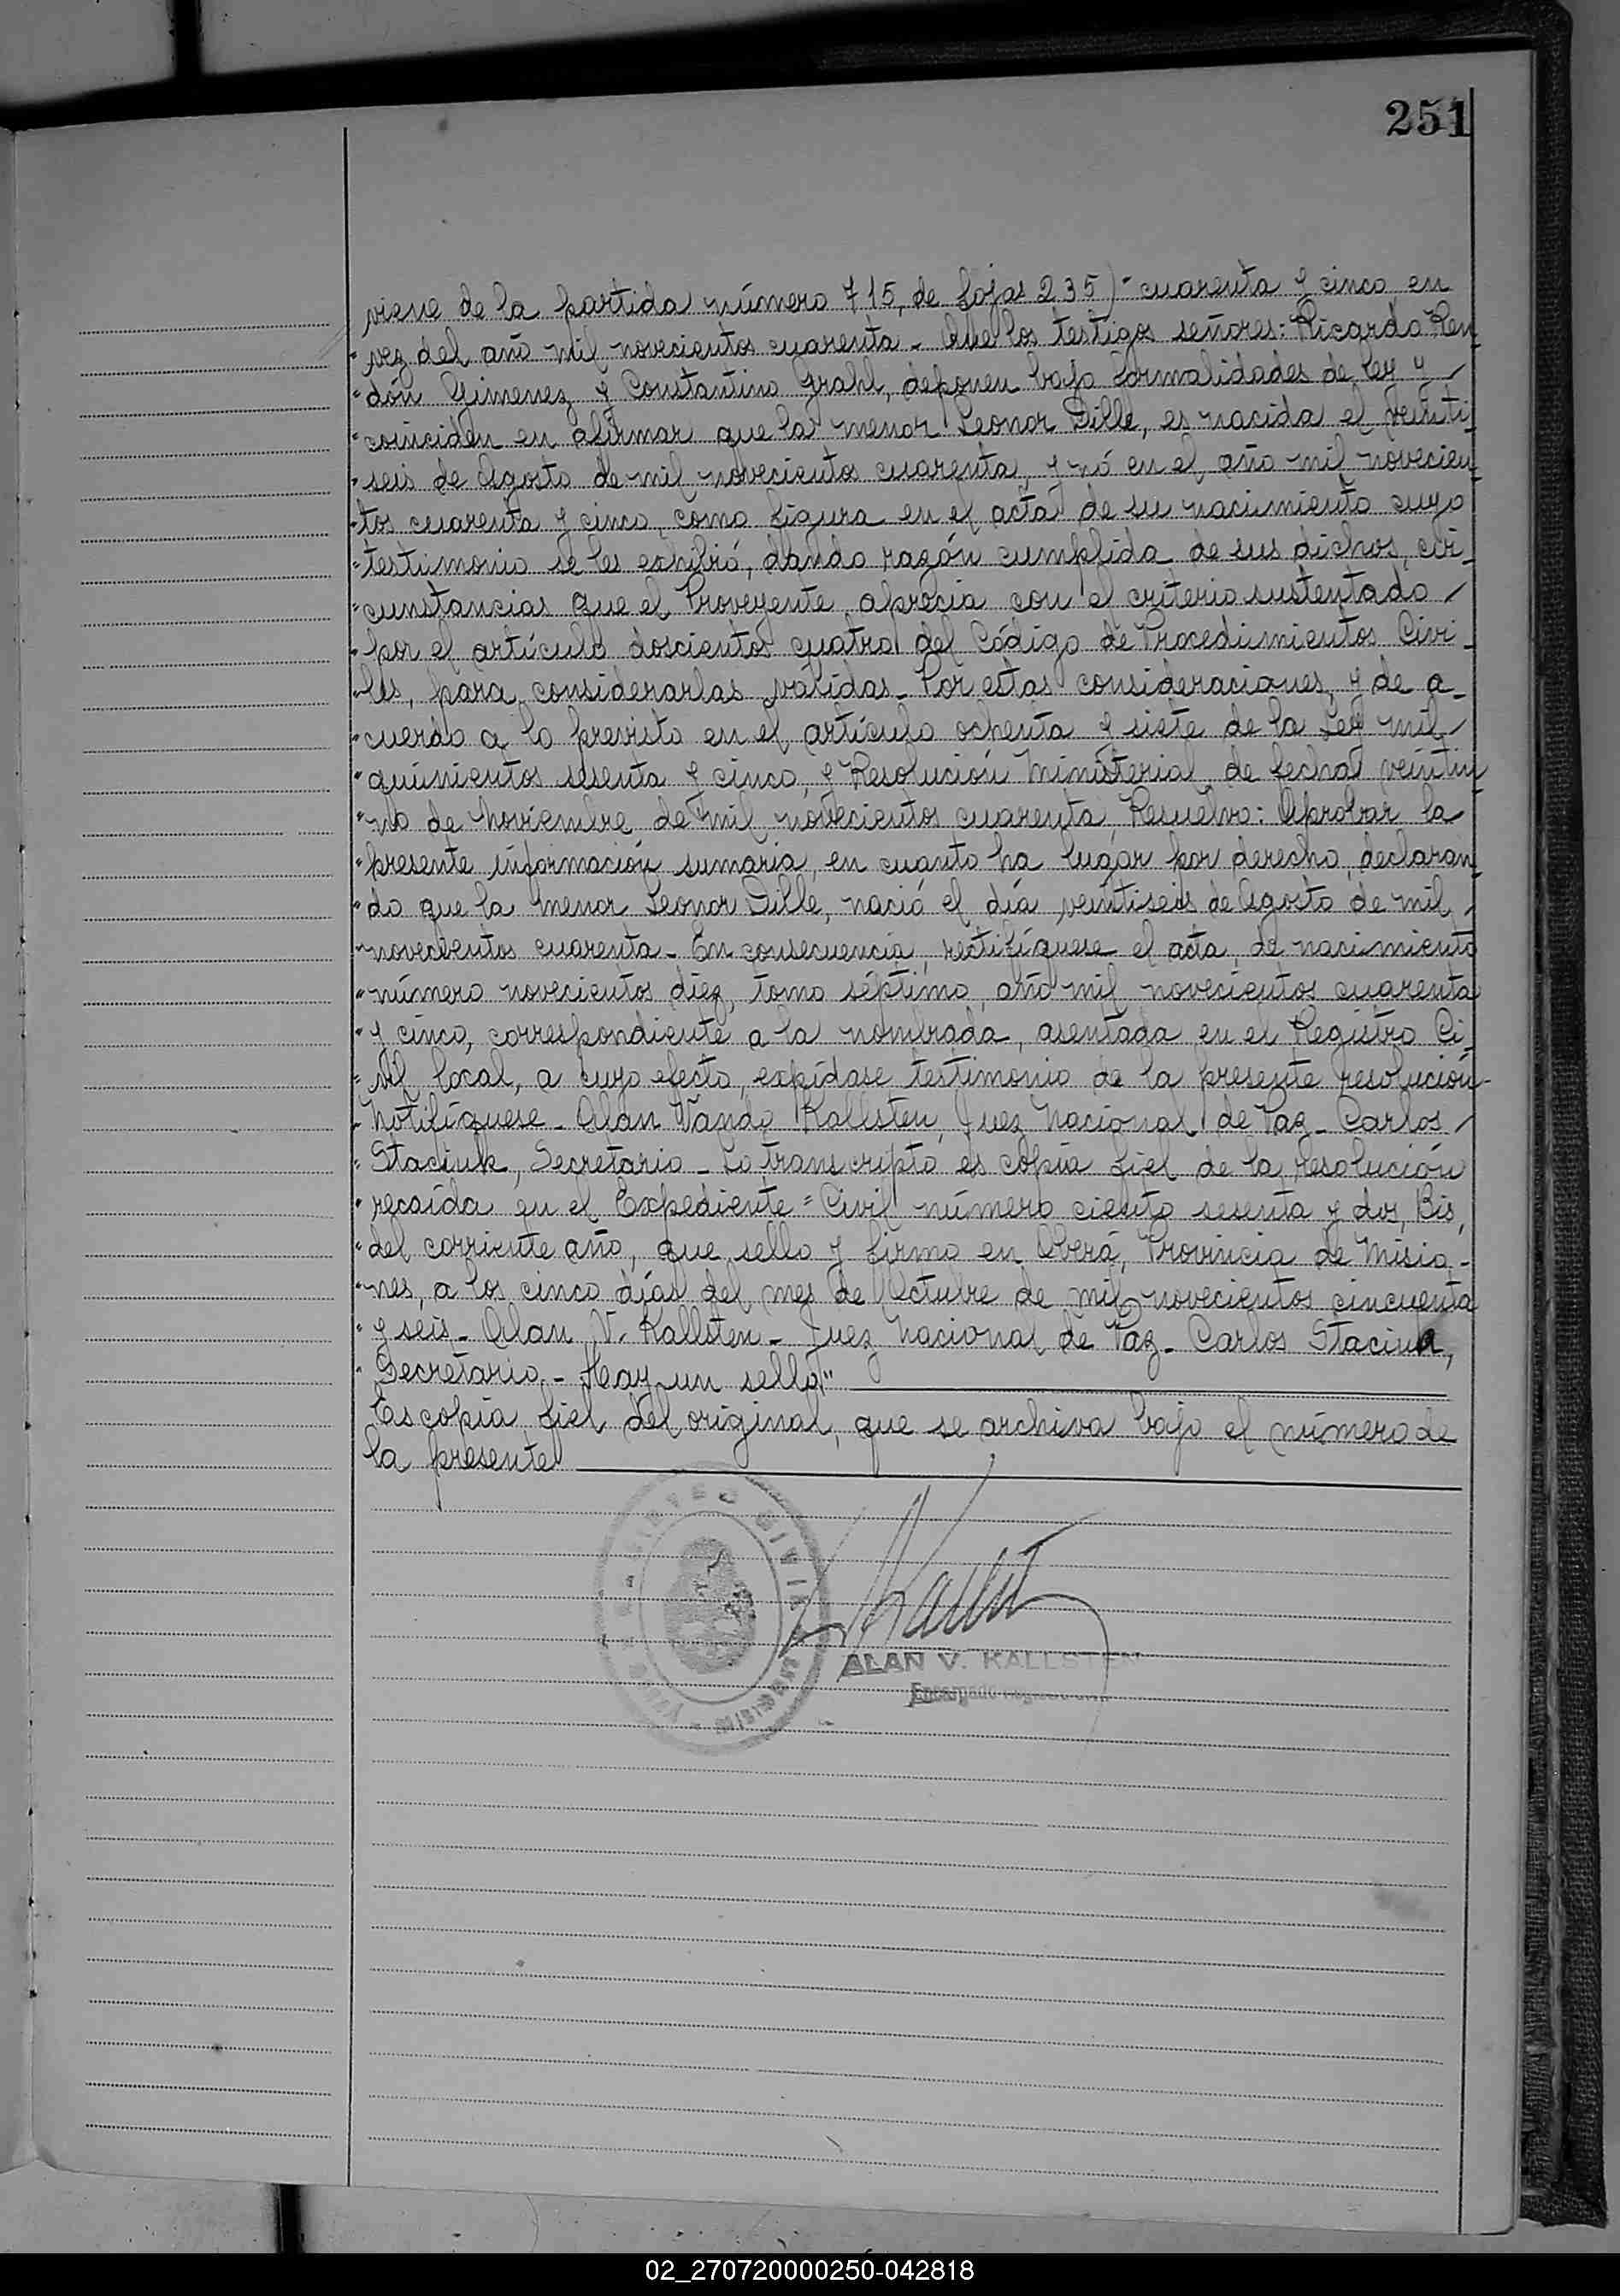 251
viene de la partida número 715, de fojas 235)-cuarenta y cinco en
"vez del año mil novecientos cuarenta - Que los testigos señores: Ricardo Ren_
"dón Gimenez y Constantino Grahl, deponen bajo formalidades de ley y /
"coinciden en afirmar que la menor Leonor Dille, es nacida el veinti_
"seis de Agosto de mil novecientos cuarenta, y nó en el año mil novecien_
"tos cuarenta y cinco, como figura en el acta de su nacimiento cuyo
"testimonio se les exhibió, dando razón cumplida de sus dichos, cir_
"cunstancias que el Proveyente aprecia con el criterio sustentado /
"por el artículo doscientos cuatro del Código de Procedimientos Civi_
"les, para considerarlas válidas - Por estas consideraciones, y de a_
"cuerdo a lo previsto en el artículo ochenta y siete de la Ley mil /
"quinientos sesenta y cinco, y Resolución Ministerial de fecha veintiu
"no de Noviembre de mil novecientos cuarenta, Resuelvo: Aprobar la
"presente información sumaria, en cuanto ha lugar por derecho, declaran_
"do que la menor Leonor Dille, nació el día veintiseis de Agosto de mil /
"novecientos cuarenta - En consecuencia, rectifíquese el acta de nacimiento
"número novecientos diez, tomo séptimo, año mil novecientos cuarenta
"y cinco, correspondiente a la nombrada, asentada en el Registro Ci_
"vil local, a cuyo efecto, expídase testimonio de la presente resolución-
"Notifíquese - Alan Vando Kallsten, Juez Nacional de Paz - Carlos /
"Staciuk, Secretario - Lo transcripto es copia fiel de la resolución
"recaída en el Expediente = Civil número ciento sesenta y dos, Bis,
"del corriente año, que sello y firmo en Oberá, Provincia de Misio_
"nes, a los cinco días del mes de Octubre de mil novecientos cincuenta
"y seis - Alan V. Kallsten - Juez Nacional de Paz - Carlos Staciuk,
"Secretario - Hay un sello"
Es copia fiel del original, que se archiva bajo el número de
la presente
REGISTRO CIVIL
MISIONES
ALAN V. KALLSTEN
Encargado Registro Civil
02_270720000250-042818